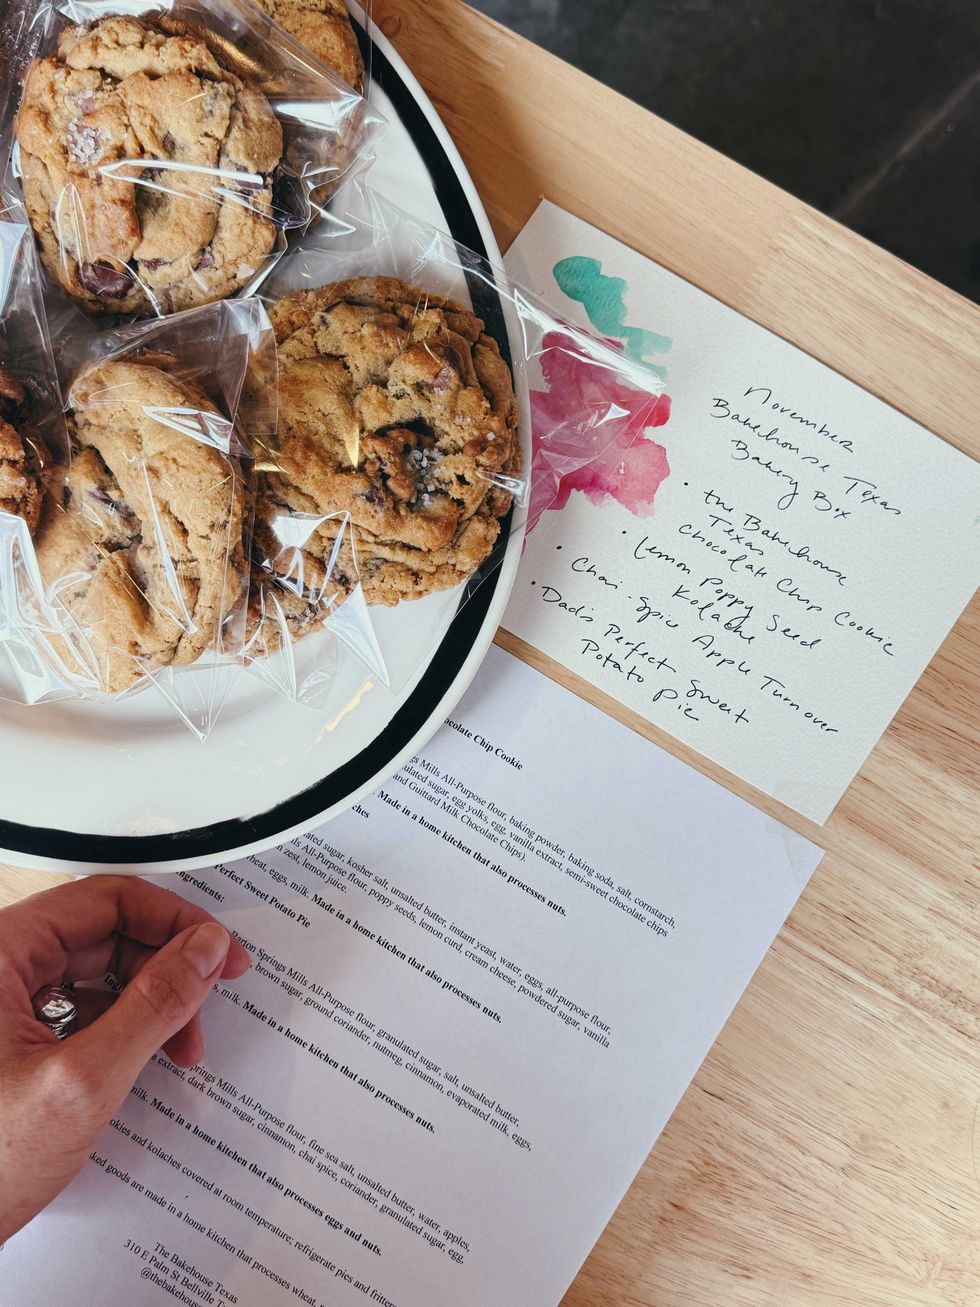 November
Bakehouse Texas
Bakery Box
• the Bakehouse
Texas
Chocolate Chip Cookie
• Lemon Poppy Seed
Kolache
• Chai-Spice Apple Turnover
• Dad's Perfect Sweet
Potato Pie
ocolate Chip Cookie
gs Mills All-Purpose flour, baking powder, baking soda, salt, cornstarch,
ulated sugar, egg yolks, egg, vanilla extract, semi-sweet chocolate chips
and Guittard Milk Chocolate Chips).
Made in a home kitchen that also processes nuts.
ches
ulated sugar, kosher salt, unsalted butter, instant yeast, water, eggs, all-purpose flour,
lls All-Purpose flour, poppy seeds, lemon curd, cream cheese, powdered sugar, vanilla
n zest, lemon juice.
heat, eggs, milk. Made in a home kitchen that also processes nuts.
Perfect Sweet Potato Pie
ngredients:
Barton Springs Mills All-Purpose flour, granulated sugar, salt, unsalted butter,
, brown sugar, ground coriander, nutmeg, cinnamon, evaporated milk, eggs,
s, milk. Made in a home kitchen that also processes nuts.
Ing
prings Mills All-Purpose flour, fine sea salt, unsalted butter, water, apples,
a extract, dark brown sugar, cinnamon, chai spice, coriander, granulated sugar, egg,
milk. Made in a home kitchen that also processes eggs and nuts.
okies and kolaches covered at room temperature; refrigerate pies and fritters
ked goods are made in a home kitchen that processes wheat,
The Bakehouse Texas
310 E Palm St Bellville T
@thebakehous